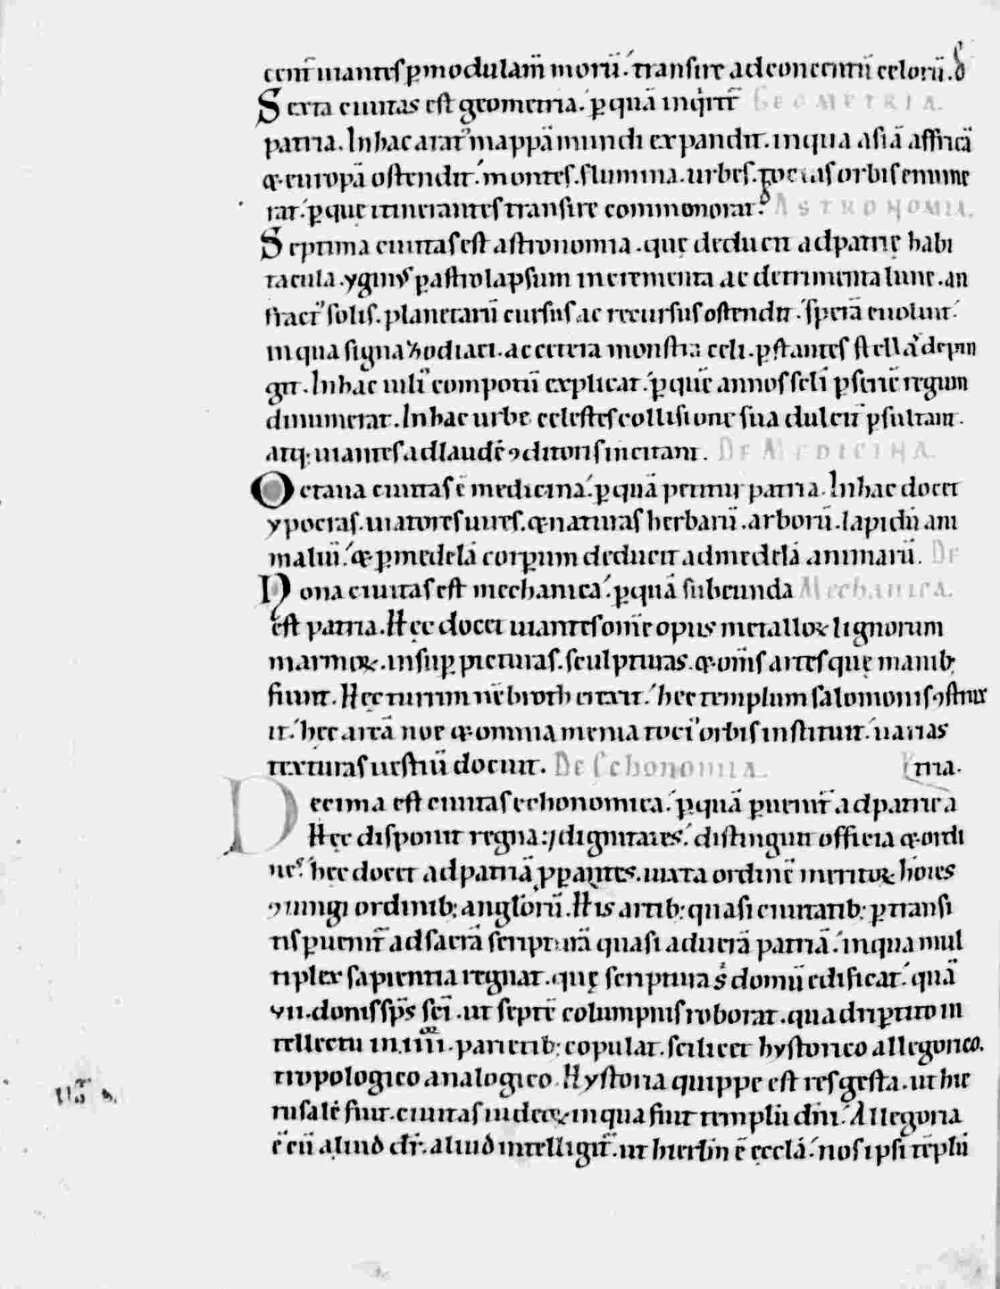 cent᷑ uiantes ꝑ modulam̃ morũ. transire ad concentũ celorũ.
Sexta ciuitas est geometria. ꝑ quã inq̇rit᷑ GEOMETRIA.
patria. In hac arat᷑ mappã mundi expandit. in qua asiã affricã
⁊ europã ostendit. montes. flumina. urbes. ⁊ uias orbis enume
rat. ꝑ que itinerantes transire commonorat. ASTRONOMIA.
Septima ciuitas est astronomia. quę ducit ad patrię habi
tacula. yginꝰ ꝑ astrolapsum incrementa ac detrimenta lune. an
fract᷒ solis. planetarũ cursus ac recursus ostendit. sperã euoluit.
in qua signa zodiaci. ac cetera monstra celi. ꝑstantes stellã depin
git. In hac iuliꝰ compotũ explicat. ꝑ quẽ annos scli ꝑ seriẽ regum
dinumerat. In hac urbe celestes collisione sua dulcit᷑ ꝑsultant.
atq; uiantes ad laudẽ ꝯditoris incitant. DE MEDICINA.
Octaua ciuitas ẽ medicina. ꝑ quã petitur patria. In hac docet
ypocras. uiatores uires. ⁊ naturas herbarũ. arborũ. lapidũ ani
maliũ. ⁊ ꝑ medelã corꝑum deducit ad medelã animarũ. De
Nona ciuitas est mechanica. ꝑ quã subeunda Mechanica.
est patria. Hęc docet uiantes om̃e opus metalloꝝ lignorum
marmoꝝ. insuꝑ picturas. sculpturas. ⁊ om̃s artes quę manib;
fiunt. Hęc turrim nẽbroth erexit. hęc templum salomonis ꝯstrux
it. hęc arcã noe ⁊ omnia menia totiꝰ orbis instituit. uarias
texturas uestiũ docuit. De Echonomia. tria.
Decima est ciuitas echonomica. ꝑ quã ꝑuenit᷑ ad patrie a
Hęc disponit regna: ⁊ dignitates. distinguit officia ⁊ ordi
nes. hęc docet ad patriã ꝓꝑantes. iuxta ordinẽ meritoꝝ hoĩes
ꝯiungi ordinib; angłorũ. His artib; quasi ciuitatib; ꝑtransi
tis ꝑuenit᷑ ad sacrã scripturã quasi ad uerã patriã. in qua mul
tiplex sapientia regnat. quę scriptura ş domũ edificat. quã
vii. donis sp̃s sc̃i. ut septẽ columpnis roborat. quadriꝑtito in
tellectu in. iiii. parietib; copulat. scilicet hystorico allegorico.
tropologico analogico. Hystoria quippe est res gesta. ut hie
rusalẽ fuit. ciuitas iudeoꝝ in qua fuit templũ dñi. Allegoria
ẽ cũ aliud dr̃. aliud intelligit᷑. ut hierłm ẽ ęcclã. nos ipsi tẽplũ